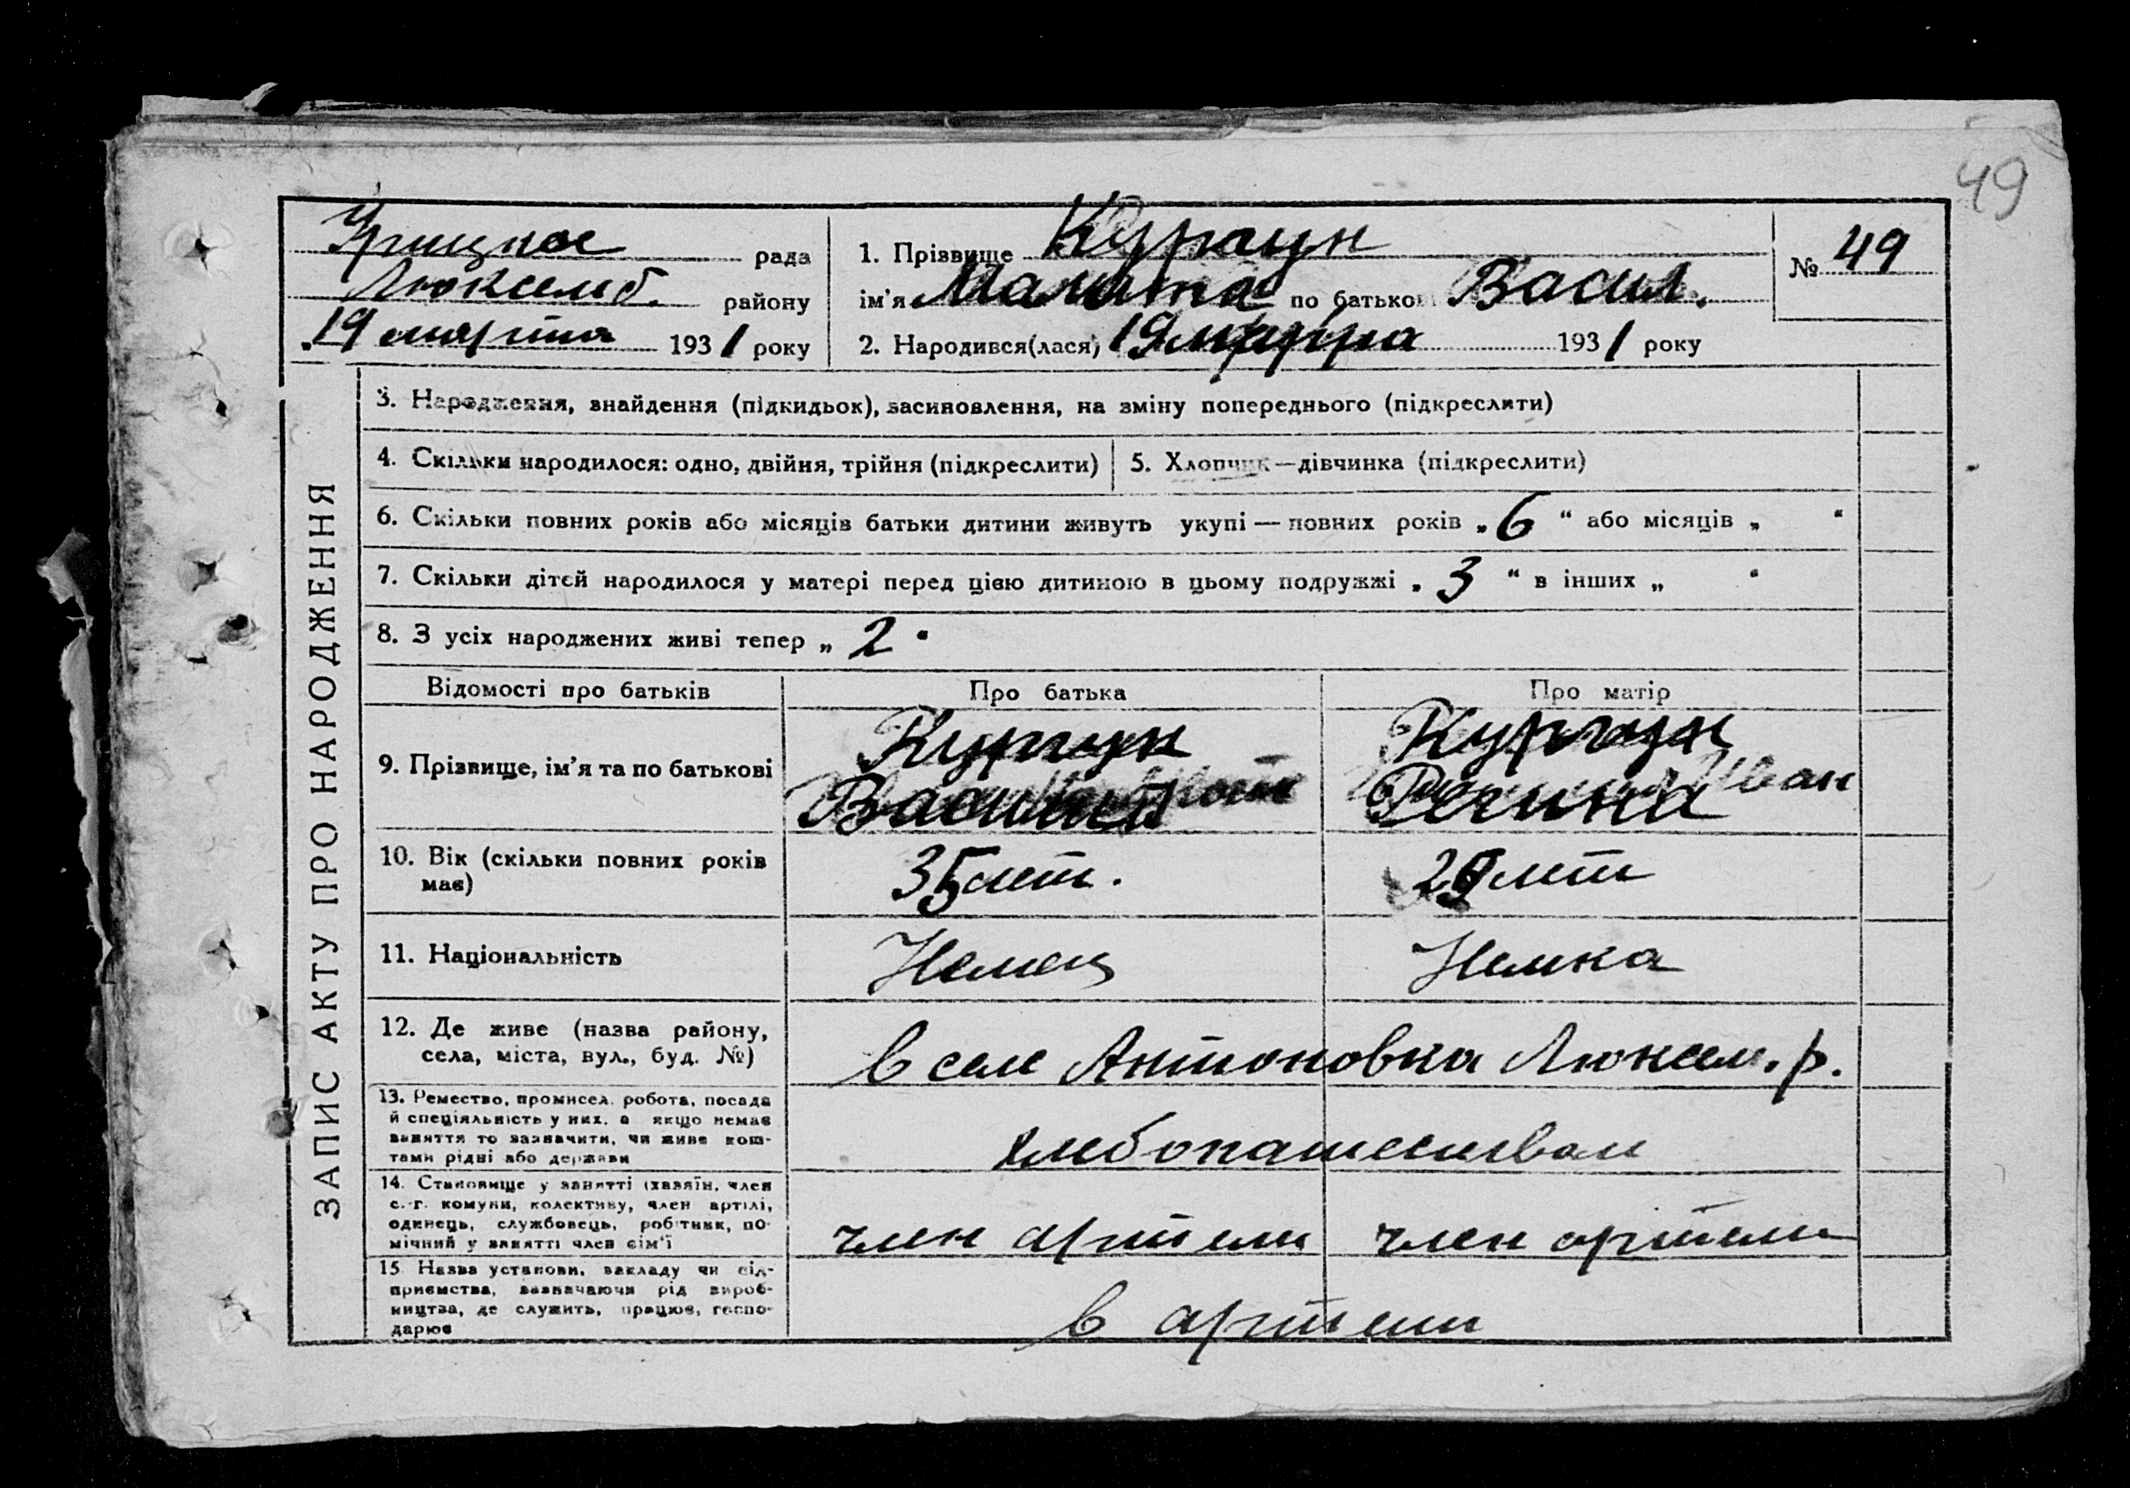 49
Урицкое рада
Люксемб. району
„19 марта 1931 року
1. Прізвище
ім'я по батькові Васил.
2. Народився(лася) 19 марта 1931 року
№ 49
ЗАПИС АКТУ ПРО НАРОДЖЕННЯ
3. Народження, знайдення (підкидьок), засиновлення, на зміну попереднього (підкреслити)
4. Скільки народилося: одно, двійня, трійня (підкреслити)
5. Хлопчик—дівчинка (підкреслити)
6. Скільки повних років або місяців батьки дитини живуть укупі — повних років „6“ або місяців „ “
7. Скільки дітей народилося у матері перед цією дитиною в цьому подружжі „3“ в інших „ “
8. З усіх народжених живі тепер „2“
Відомості про батьків
Про батька
Про матір
9. Прізвище, ім'я та по батькові
Регина
10. Вік (скільки повних років
має)
35 лет.
29 лет
11. Національність
Немец
Немка
12. Де живе (назва району,
села, міста, вул., буд. №)
в селе Антоновка Люксем. р.
13. Ремество, промисел, робота, посада
й спеціяльність у них, а якщо немає
заняття то зазначити, чи живе кош-
тами рідні або держави
хлебопашеством
14. Становище у занятті (хазяїн, член
с.-г. комуни, колективу, член артілі,
одинець, службовець, робітник, по-
мічний у занятті член сім'ї
член артели
член артели
15. Назва установи, закладу чи під-
приємства, зазначаючи рід вироб-
ництва, де служить, працює, госпо-
дарює
в артели